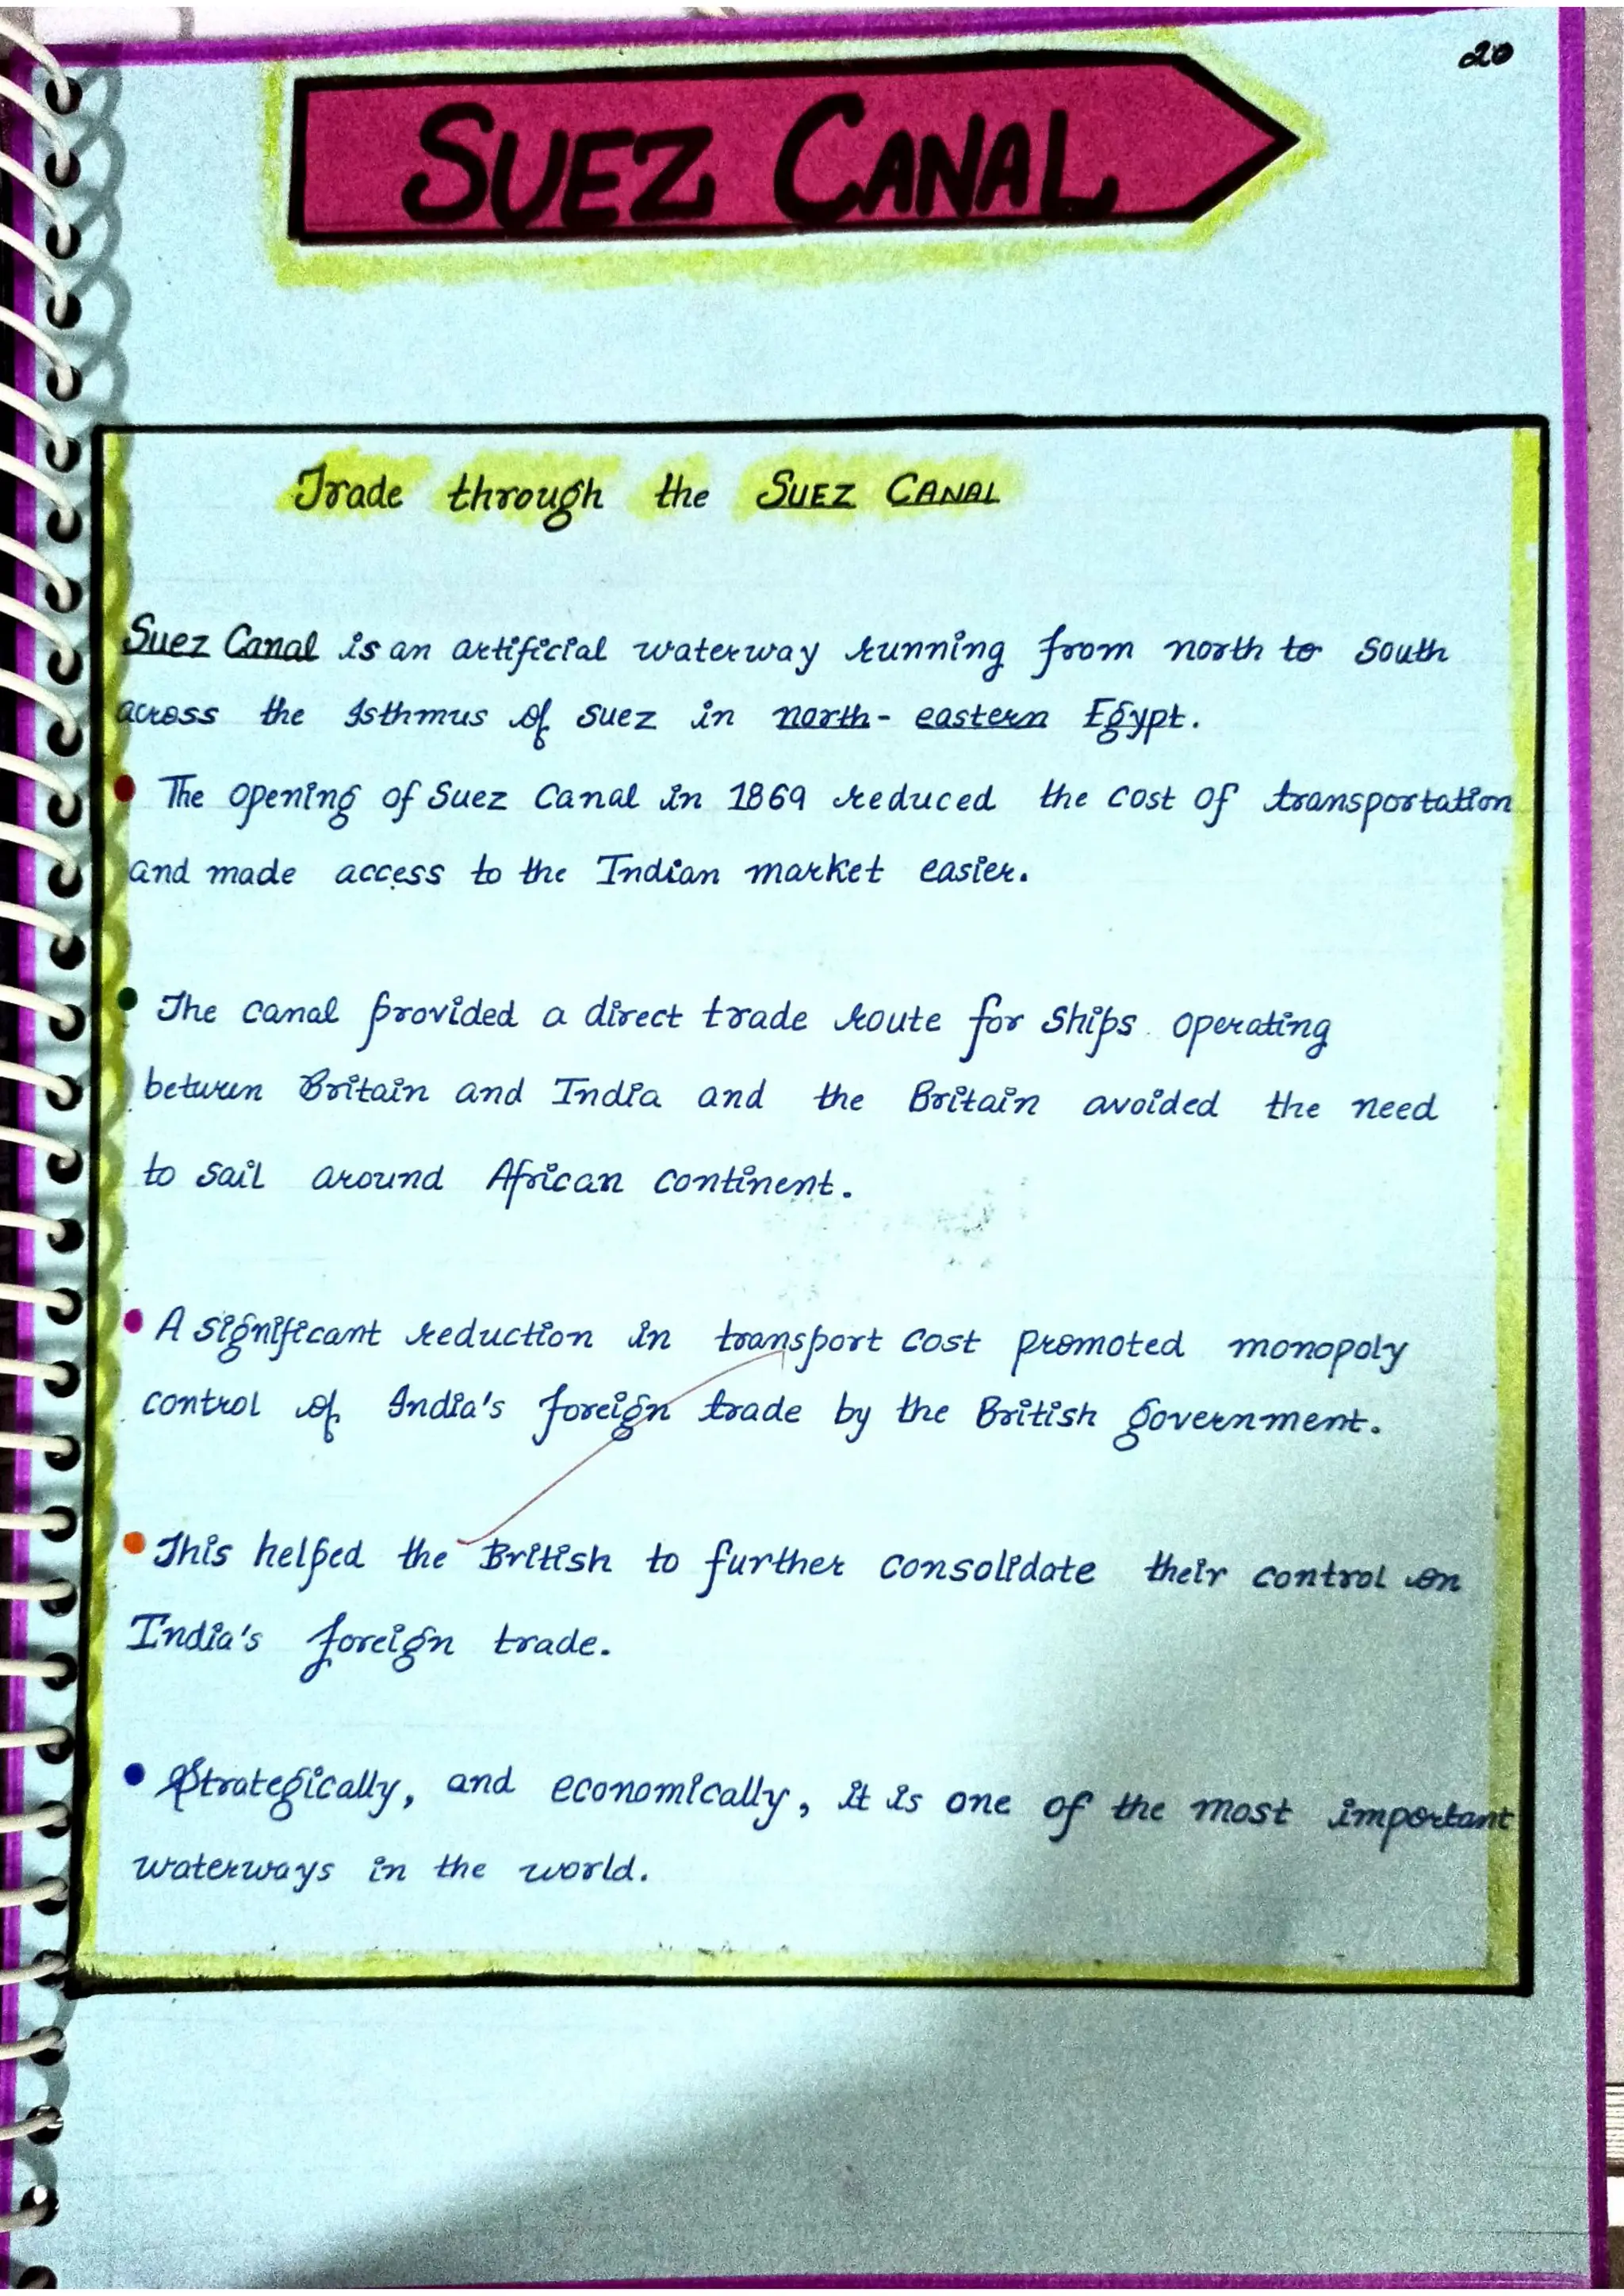 20
SUEZ CANAL
Trade through the SUEZ CANAL
Suez Canal is an artificial waterway running from north to south
across the Isthmus of Suez in north-eastern Egypt.
• The opening of Suez Canal in 1869 reduced the cost of transportation
and made access to the Indian market easier.
• The canal provided a direct trade route for ships operating
between Britain and India and the Britain avoided the need
to sail around African continent.
• A significant reduction in transport cost promoted monopoly
control of India's foreign trade by the British government.
• This helped the British to further consolidate their control on
India's foreign trade.
• Strategically, and economically, it is one of the most important
waterways in the world.